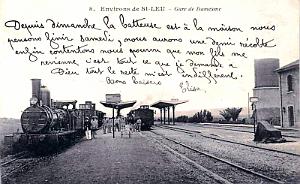 8. Environs de St-LEU — Gare de Damesme
Depuis dimanche la batteuse est à la maison nous
pensons finir Samedi, nous aurons une demi récolte
enfin contentons nous pourvu que mon fils me
revienne, c'est tout ce que je demande à
Dieu tout le reste m'est indifférent.
Bons baisers